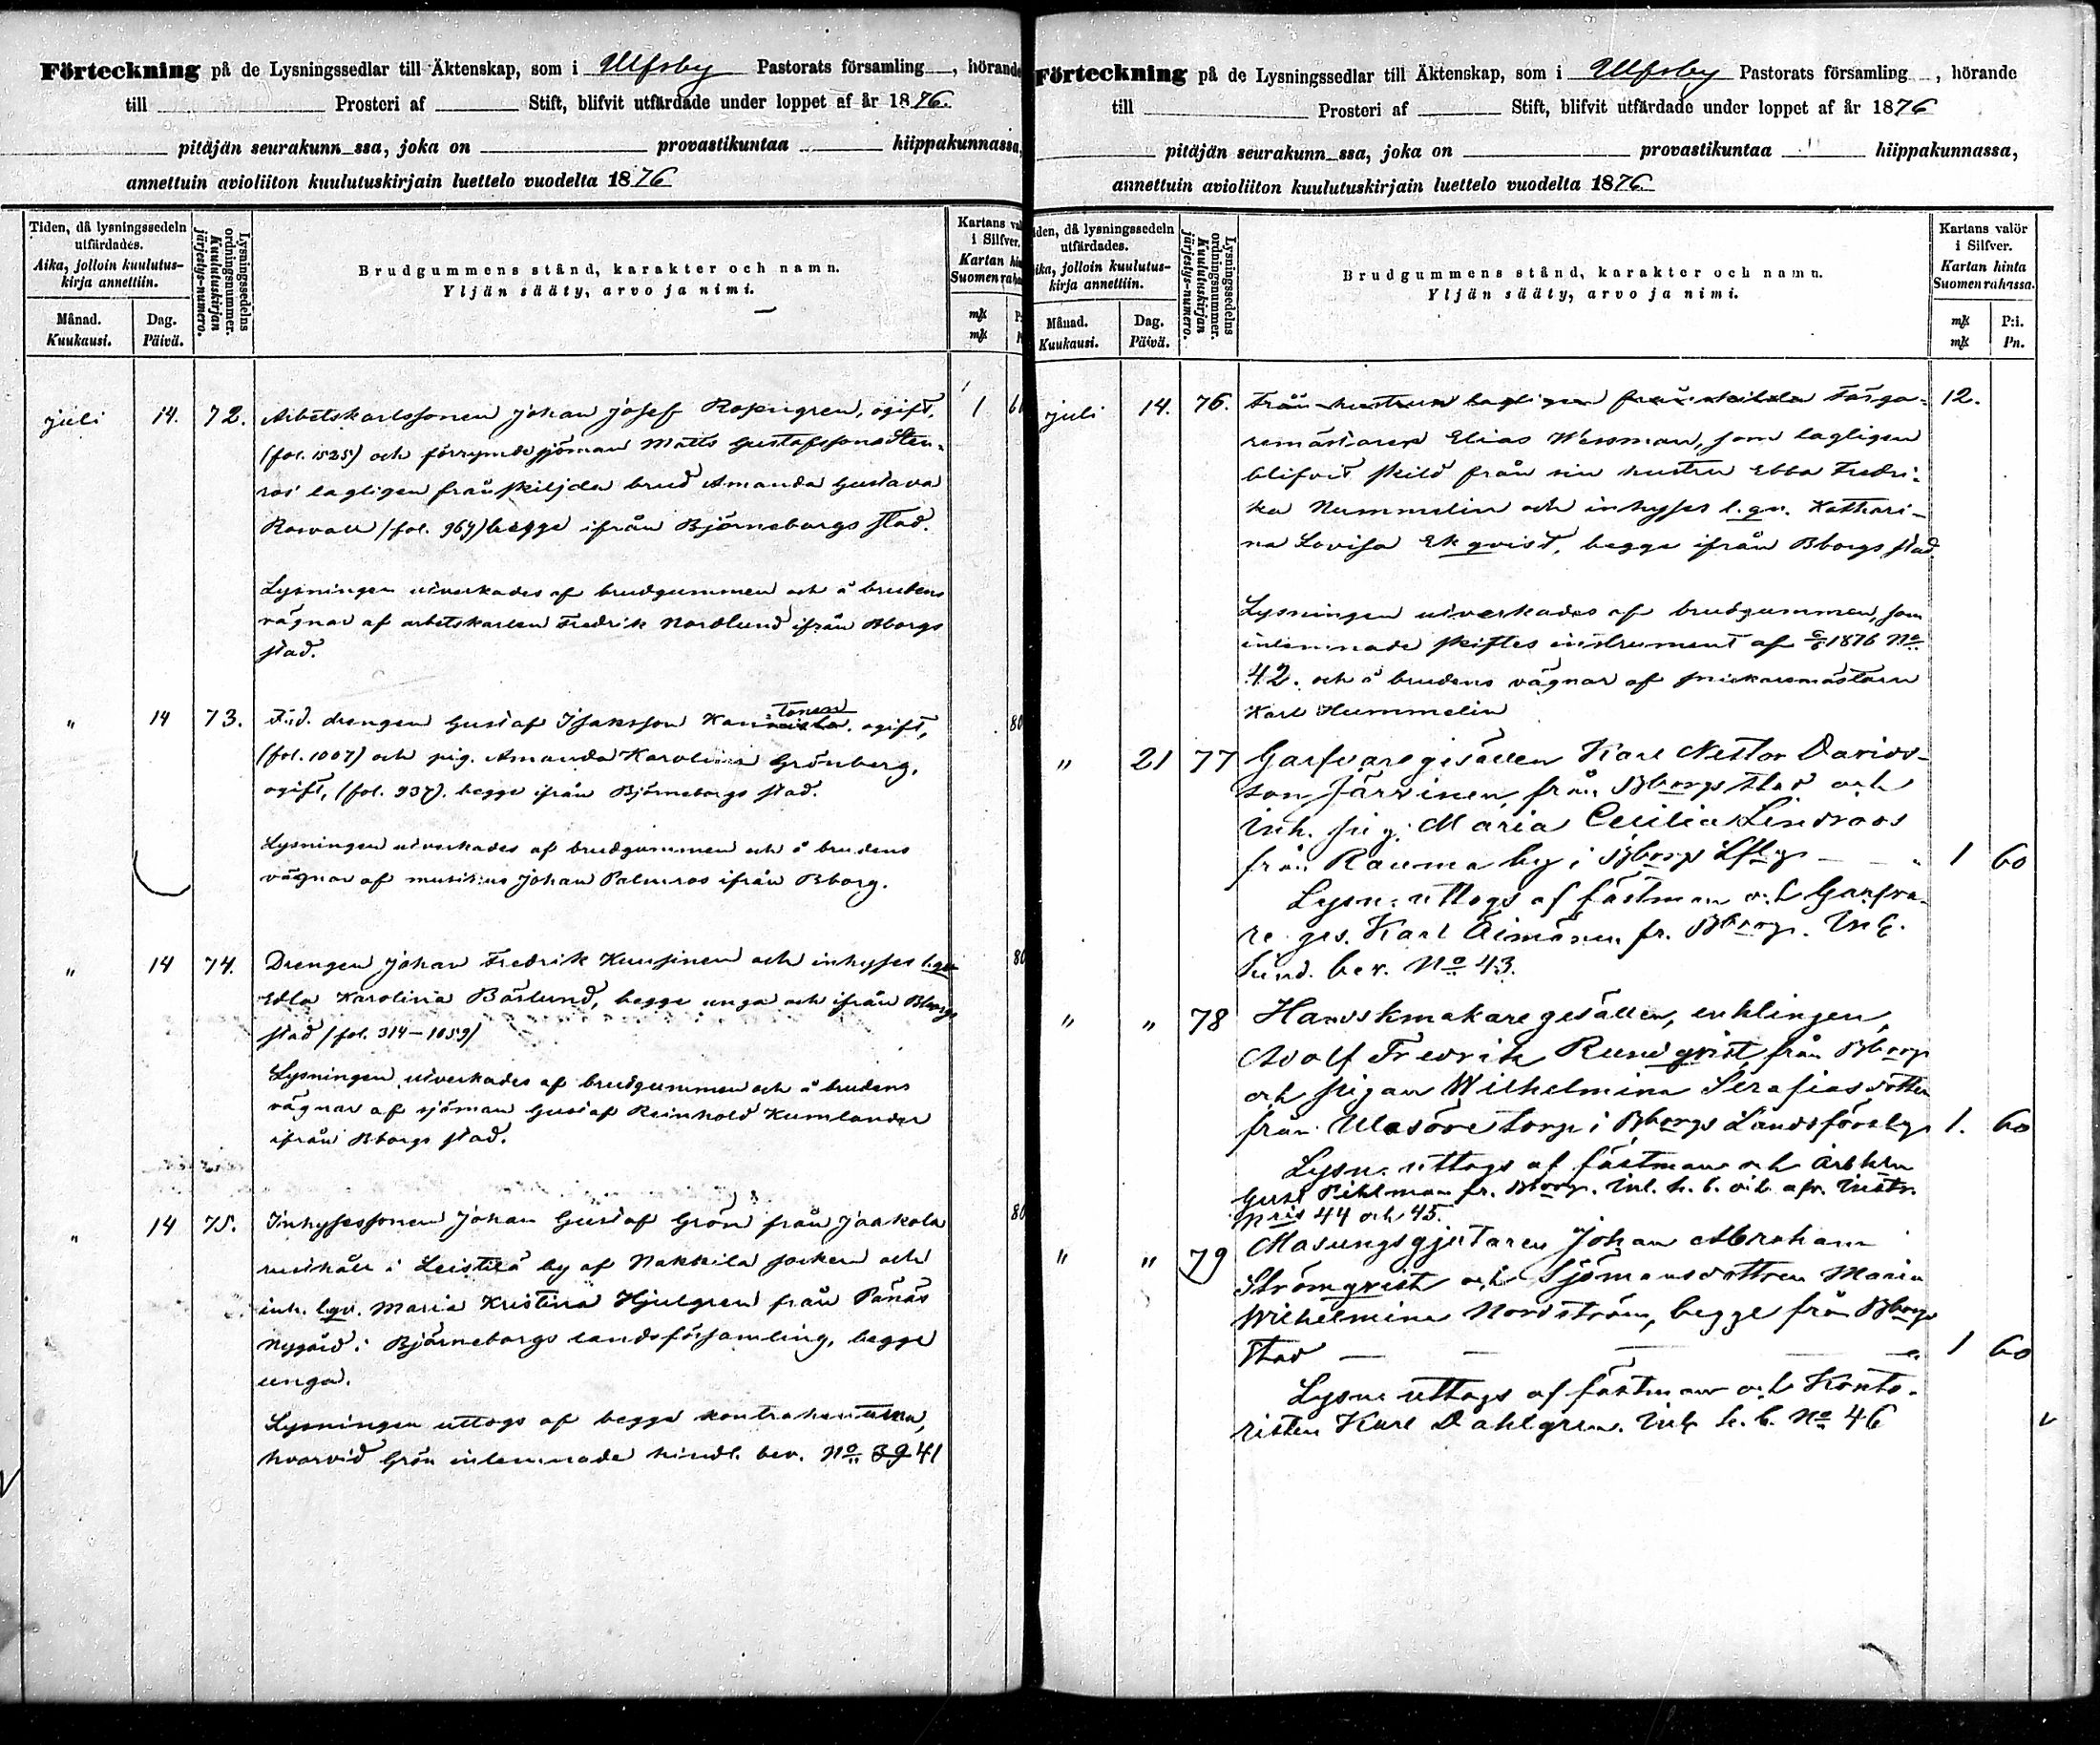 Förteckning på de Lysningssedlar till Äktenskap, som i Ulfsby Pastorats församling , hörande
till Prosteri af Stift, blifvit utfärdade under loppet af år 1876.
pitäjän seurakunn ssa, joka on provastikuntaa hiippakunnassa,
annettuin avioliiton kuulutuskirjain luettelo vuodelta 1876
Tiden, då lysningssedeln
utfärdades.
Aika, jolloin kuulutus-
kirja annettiin.
Månad.
Kuukausi.
Dag.
Päivä.
Lysningssedelns
ordningsnummer.
Kuulutuskirjan
järjestys-numero.
Brudgummens stånd, karakter och namn.
Yljän sääty, arvo ja nimi.
Kartans val
i Silfver.
Kartan hin
Suomen raha
mk
mk
juli 14. 72. Arbetskarlssonen Johan Josef Rosengren, ogift, 1 60
(fol. 1525) och förrymde sjöman Matts Gustafsson Sten-
ros' lagligen frånskiljda brud Amanda Gustava
Rowall (fol. 969) begge ifrån Björneborgs stad.
Lysningen utverkades af brudgummen och å brudens
vägnar af arbetskarlen Fredrik Nordlund ifrån Bborgs
stad.
" 14 73. F.d. drengen Gustaf Isaksson Kan tonen ogift, 80
(fol. 1007) och pig. Amanda Karolina Grönberg,
ogift, (fol. 937). begge ifrån Björneborgs stad.
Lysningen utverkades af brudgummen och å brudens
vägnar af musikus Johan Palmros ifrån Bborg.
" 14 74. Drengen Johan Fredrik Kuusinen och inhyses lgn 80
Edla Karolina Bärlund, begge unga och ifrån Bborgs
stad (fol. 314-1059)
Lysningen utverkades af brudgummen och å brudens
vägnar af sjöman Gustaf Reinhold Kumlander
ifrån Bborgs stad.
" 14 75. Inhysessonen Johan Gustaf Grön från Jaakola 80
rusthåll i Leistilä by af Nakkila socken och
inh. lgn. Maria Kristina Hjulgren från Pänäs
Nygård i Björneborgs landsförsamling, begge
unga.
Lysningen uttogs af begge kontrahenterna,
hvarvid Grön inlemnade hindl. bev. No 39 41
Förteckning på de Lysningssedlar till Äktenskap, som i Ulfsby Pastorats församling , hörande
till Prosteri af Stift, blifvit utfärdade under loppet af år 1876
pitäjän seurakunn ssa, joka on provastikuntaa hiippakunnassa,
annettuin avioliiton kuulutuskirjain luettelo vuodelta 1876
iden, då lysningssedeln
utfärdades.
ika, jolloin kuulutus-
kirja annettiin.
Månad.
Kuukausi.
Dag.
Päivä.
Lysningssedelns
ordningsnummer.
Kuulutuskirjan
järjestys-numero.
Brudgummens stånd, karakter och namn.
Yljän sääty, arvo ja nimi.
Kartans valör
i Silfver.
Kartan hinta
Suomen rahassa.
mk P:i.
mk Pn.
juli 14. 76. Från hustrun lagligen frånskilda Färga- 12.
remästaren Elias Wessman, som lagligen
blifvit skild från sin hustru Ebba Fredri-
ka Nummelin och inhyses l.qv. Kathari-
na Lovisa Ekqvist, begge ifrån Bborgs stad.
Lysningen utverkades af brudgummen, som
inlemnade skiftes instrument af 1876 No
42. och å brudens vägnar af snickaremästaren
Karl Hummelin
" 21 77 Garfvaregesällen Karl Nestor Davids-
son Järvinen från Bborgs stad och
inh. pig. Maria Cecilia Lindroos
från Rauma by i Bborgs Lfsg 1 60
Lysn. uttogs af fästman och Garfva-
re ges. Karl Äimänen fr. Bborg. Inl.
hind. bev. No 43.
" " 78 Handskmakaregesällen, enklingen,
Adolf Fredrik Rundqvist från Bborg
och pigan Wilhelmina Serafiasdotter
från Ulasöre torp i Bborgs Landsförslg 1. 60
Lysn. uttogs af fästman och Arbkln
Gust Pihlman fr. Bborg. Inl. h.b. och afv. instr.
Nris 44 och 45.
" " 79 Masungsgjutaren Johan Abraham
Strömqvist och Sjömansdottren Maria
Wilhelmina Nordström, begge från Bborgs
Stad 1 60
Lysn. uttogs af fästman och Konto-
risten Karl Dahlgren. Inl. h.b. No 46